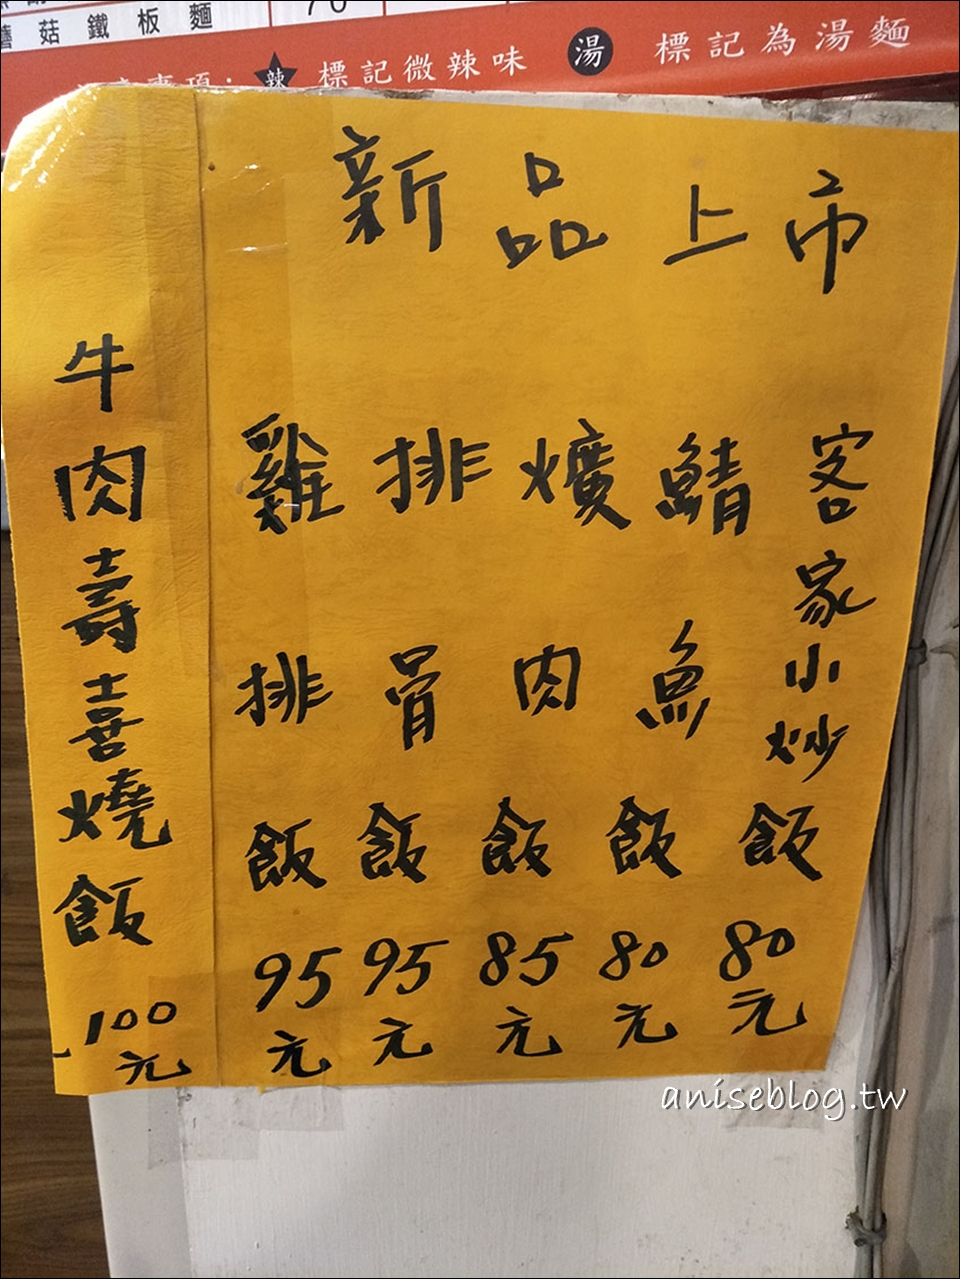 蘑菇鐵板麵 70
意事項： 辣 標記微辣味 湯 標記為湯麵
新品上市
客家小炒飯 80元
鯖魚飯 80元
爌肉飯 85元
排骨飯 95元
雞排飯 95元
牛肉壽喜燒飯 100元
aniseblog.tw